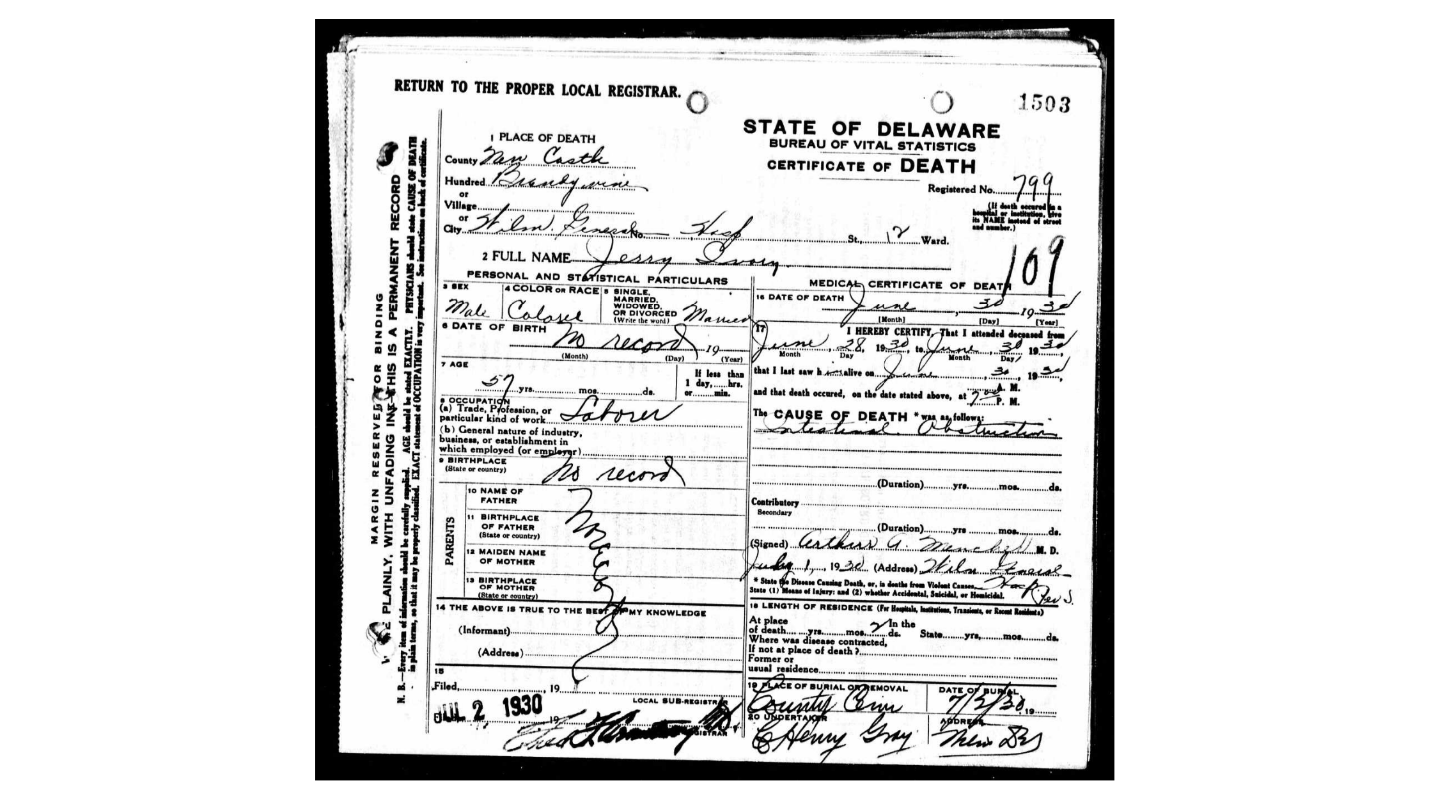 RETURN TO THE PROPER LOCAL REGISTRAR.
1503
STATE OF DELAWARE
BUREAU OF VITAL STATISTICS
CERTIFICATE OF DEATH
Registered No. 799
(If death occured in a hospital or institution, give its NAME instead of street and number.)
109
MARGIN RESERVED FOR BINDING
PLAINLY, WITH UNFADING INK—THIS IS A PERMANENT RECORD
N. B.—Every item of information should be carefully supplied. AGE should be stated EXACTLY. PHYSICIANS should state CAUSE OF DEATH
in plain terms, so that it may be properly classified. EXACT statement of OCCUPATION is very important. See instructions on back of certificate.
1 PLACE OF DEATH
County New Castle
Hundred Brandywine
or
Village
or
City Wilm. General No. Hosp St., 12 Ward.
2 FULL NAME Jerry Ivory
PERSONAL AND STATISTICAL PARTICULARS
3 SEX Male
4 COLOR OR RACE Colored
5 SINGLE, MARRIED, WIDOWED, OR DIVORCED (Write the word) Married
6 DATE OF BIRTH No record 19
(Month) (Day) (Year)
7 AGE 57 yrs. mos. ds.
If less than 1 day, hrs. or min.
8 OCCUPATION
(a) Trade, Profession, or particular kind of work Laborer
(b) General nature of industry, business, or establishment in which employed (or employer)
9 BIRTHPLACE (State or country) No record
PARENTS
10 NAME OF FATHER
11 BIRTHPLACE OF FATHER (State or country)
12 MAIDEN NAME OF MOTHER
13 BIRTHPLACE OF MOTHER (State or country)
No record
14 THE ABOVE IS TRUE TO THE BEST OF MY KNOWLEDGE
(Informant)
(Address)
15
Filed, 19
LOCAL SUB-REGISTRAR
JUL 2 1930 19
REGISTRAR
MEDICAL CERTIFICATE OF DEATH
16 DATE OF DEATH June 30 1930
(Month) (Day) (Year)
17 I HEREBY CERTIFY, That I attended deceased from
June 28, 1930 to June 30 1930
Month Day Month Day
that I last saw h alive on June 30 1930
and that death occured, on the date stated above, at 7 A. M. P. M.
The CAUSE OF DEATH * was as follows:
Intestinal Obstruction
(Duration) yrs. mos. ds.
Contributory
Secondary
(Duration) yrs mos. ds.
(Signed) Arthur A. M. D.
July 1, 1930 (Address) Wilm General
Hosp
* State the Disease Causing Death, or, in deaths from Violent Causes,
State (1) Means of Injury: and (2) whether Accidental, Suicidal, or Homicidal.
18 LENGTH OF RESIDENCE (For Hospitals, Institutions, Transients, or Recent Residents)
At place of death yrs. mos. 2 ds. In the State yrs. mos. ds.
Where was disease contracted, If not at place of death?
Former or usual residence
19 PLACE OF BURIAL OR REMOVAL
County Cem
DATE OF BURIAL
7/2/30 19
20 UNDERTAKER
C Henry Gray
ADDRESS